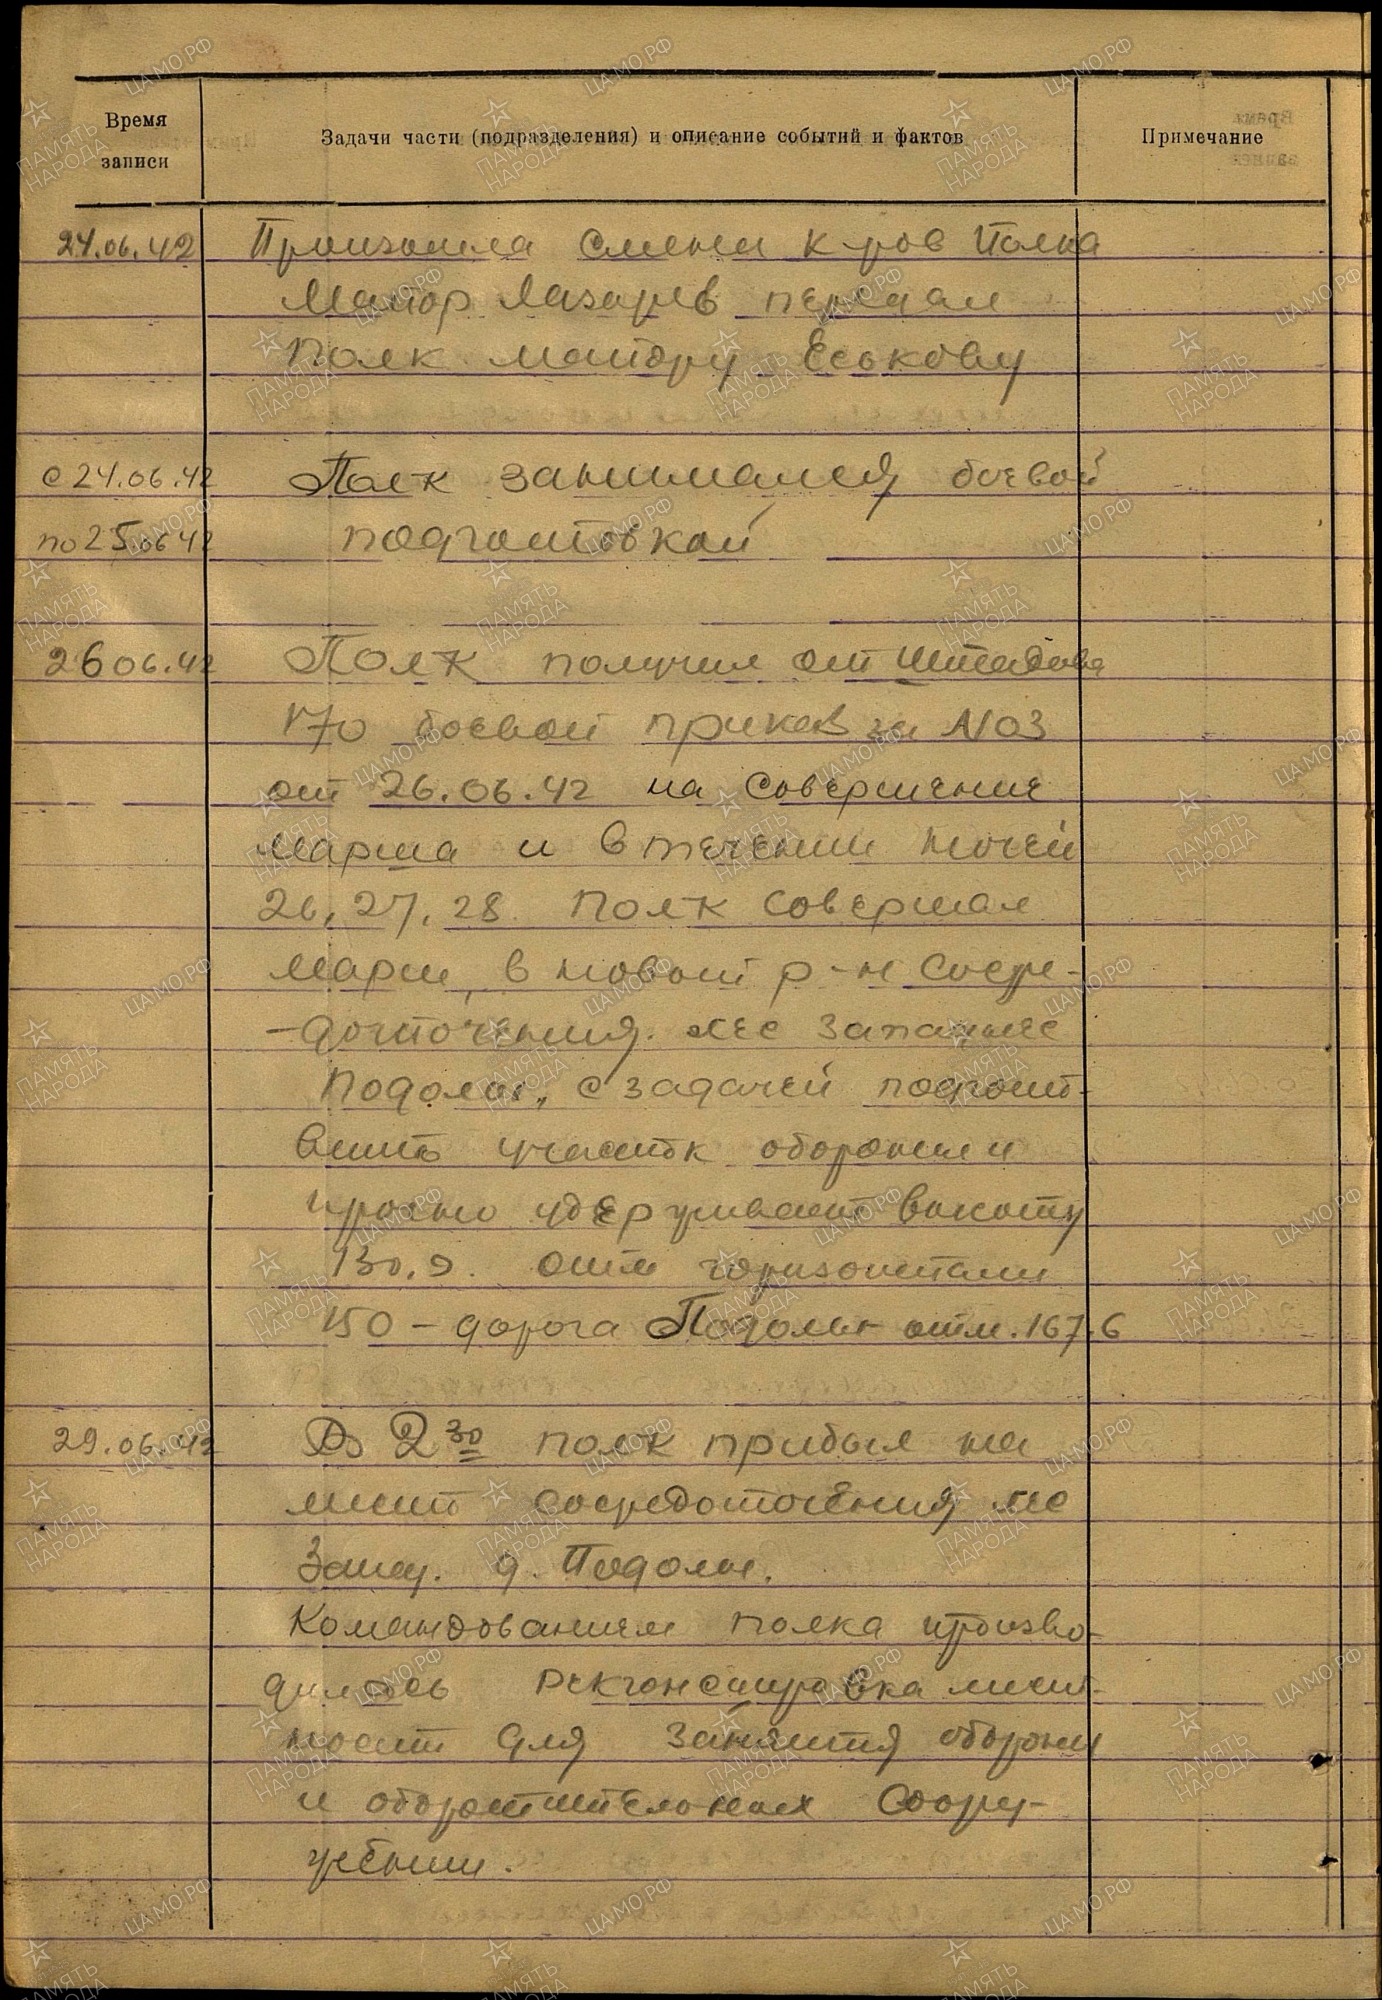 Время записи
Задачи части (подразделения) и описание событий и фактов
Примечание
24.06.42 Произошла смена к-ров полка
Майор Лазарев передал
Полк майору Еськову
с 24.06.42 Полк занимался боевой
по 25.06 42 подготовкой
26 06.42 Полк получил от штадива
170 боевой приказ за №03
от 26.06.42 на совершение
марша и в течении ночей
26, 27, 28 Полк совершал
марш, в новый р-н сосре-
-доточения. лес западнее
Подолы, с задачей подгот-
вить участок обороны и
прочно удерживать высоту
130.9. отм горизонтами
150 – дорога Подолы отм. 167.6
29.06.42 В 2 30 полк прибыл на
мест сосредоточения лес
Запад. д. Подолы.
Командованием полка произво-
дилось рекгонсцировка мест-
ност для занятия обороны
и оборонительных соору-
жений.
ЦАМО.РФ
ПАМЯТЬ НАРОДА